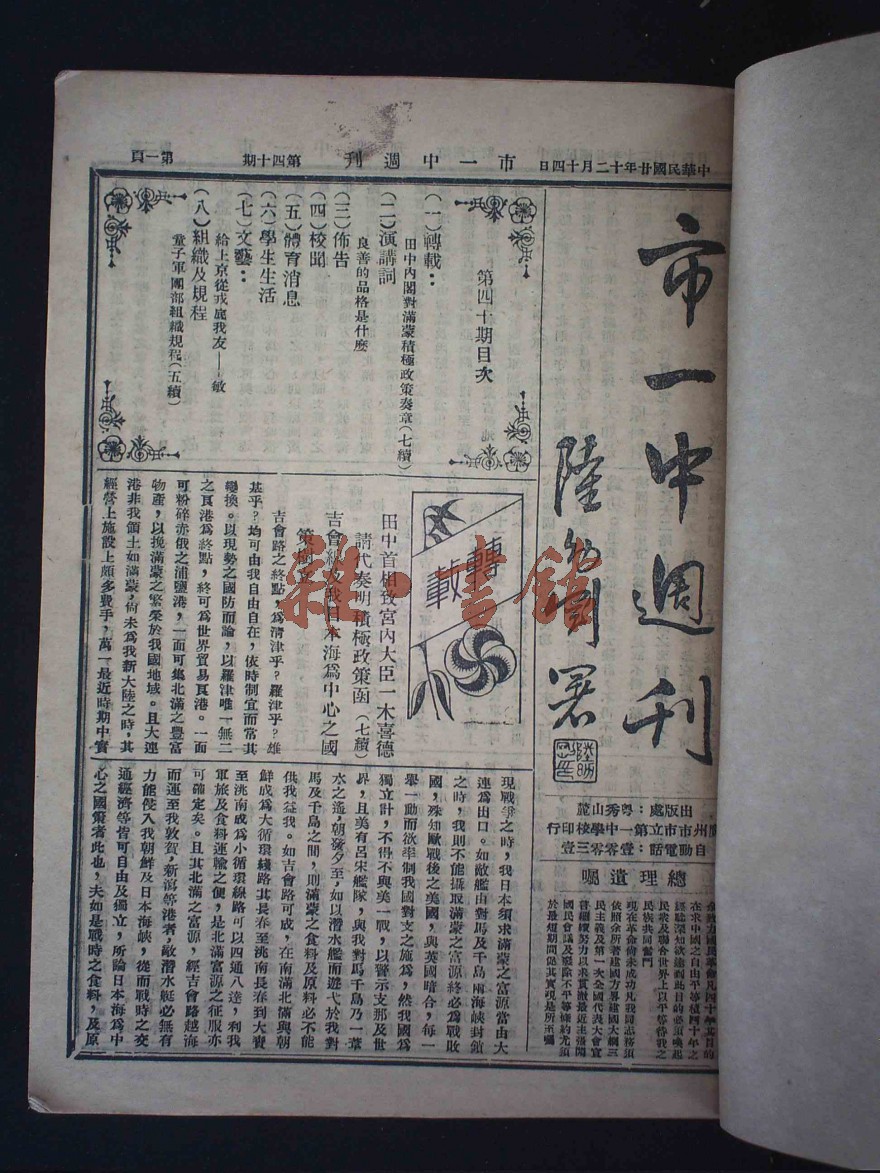 中華民國廿年十二月十四日
市一中週刊
第四十期
第一頁
市一中週刊
陸幼剛署
出版處：粤秀山麓
廣州市市立第一中學校印行
自動電話：壹零零三壹
總理遺囑
余致力國民革命凡四十年其目的
在求中國之自由平等積四十年之
經驗深知欲達到此目的必須喚起
民衆及聯合世界上以平等待我之
民族共同奮鬥
現在革命尚未成功凡我同志務須
依照余所著建國方畧建國大綱三
民主義及第一次全國代表大會宣
言繼續努力以求貫徹最近主張開
國民會議及廢除不平等條約尤須
於最短期間促其實現是所至囑
第四十期目次
（一）轉載：
田中内閣對滿蒙積極政策奏章（七續）
（二）演講詞
良善的品格是什麽
（三）佈告
（四）校聞
（五）體育消息
（六）學生生活
（七）文藝：
給上京從戎底我友——敏
（八）組織及規程
童子軍團部組織規程（五續）
轉載
田中首相致宮内大臣一木喜德
請代奏明積極政策函（七續）
吉會線及我日本海爲中心之國
策
吉會路之終點，爲清津乎？羅津乎？雄
基乎？均可由我自由自在，依時制宜而常其
變換。以現勢之國防而論，以羅津唯一無二
之良港爲終點，終可爲世界貿易良港。一面
可粉碎赤俄之浦鹽港，一面可集北滿之豐富
物產，以挽滿蒙之繁榮於我國地域。且大連
港非我領土如滿蒙，尚未爲我新大陸之時，其
經營上施設上頗多費手，萬一最近時期中實
現戰爭之時，我日本須求滿蒙之富源當由大
連爲出口。如敵艦由對馬及千島兩海峽封鎖
之時，我則不能攝取滿蒙之富源終必爲戰敗
國，殊知歐戰後之美國，與英國暗合，每一
舉一動而欲牽制我國對支之施爲，然我國爲
獨立計，不得不與美一戰，以警示支那及世
界，且美有呂宋艦隊，與我對馬千島乃一葦
水之遙，朝發夕至，如以潛水艦而遊弋於我對
馬及千島之間，則滿蒙之食料及原料必不能
供我益我。如吉會路可成，在南滿北滿與朝
鮮成爲大循環綫路其長春至洮南長春到大賚
至洮南成爲小循環線路可以四通八達，利我
軍旅及食料運輸之便，是北滿富源之征服亦
可確定矣。且其北滿之富源，經吉會路越海
而運至我敦賀，新瀉等港者，敵潛水艇必無有
力能侵入我朝鮮及日本海峽，從而戰時之交
通經濟等皆可自由及獨立，所論日本海爲中
心之國策者此也，夫如是戰時之食料，及原
雜·書館